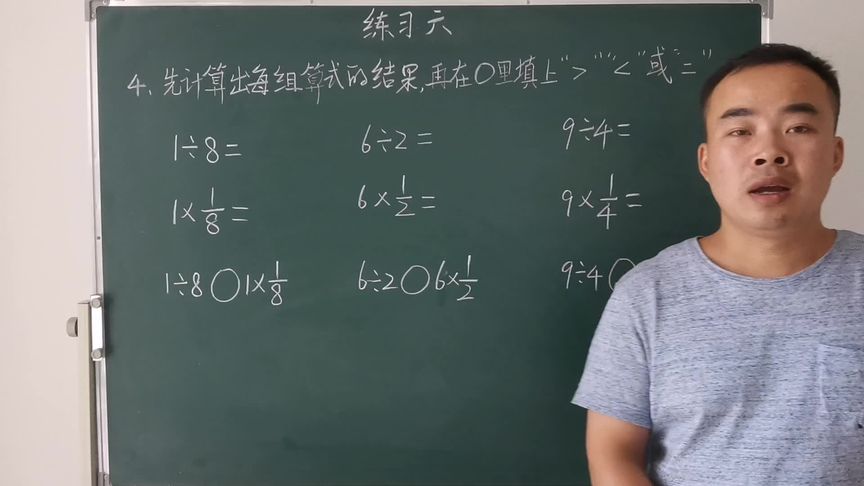 练习六
4、先计算出每组算式的结果,再在○里填上“>”“<”或“=”
1÷8= 6÷2= 9÷4=
1×1/8= 6×1/2= 9×1/4=
1÷8○1×1/8 6÷2○6×1/2 9÷4○